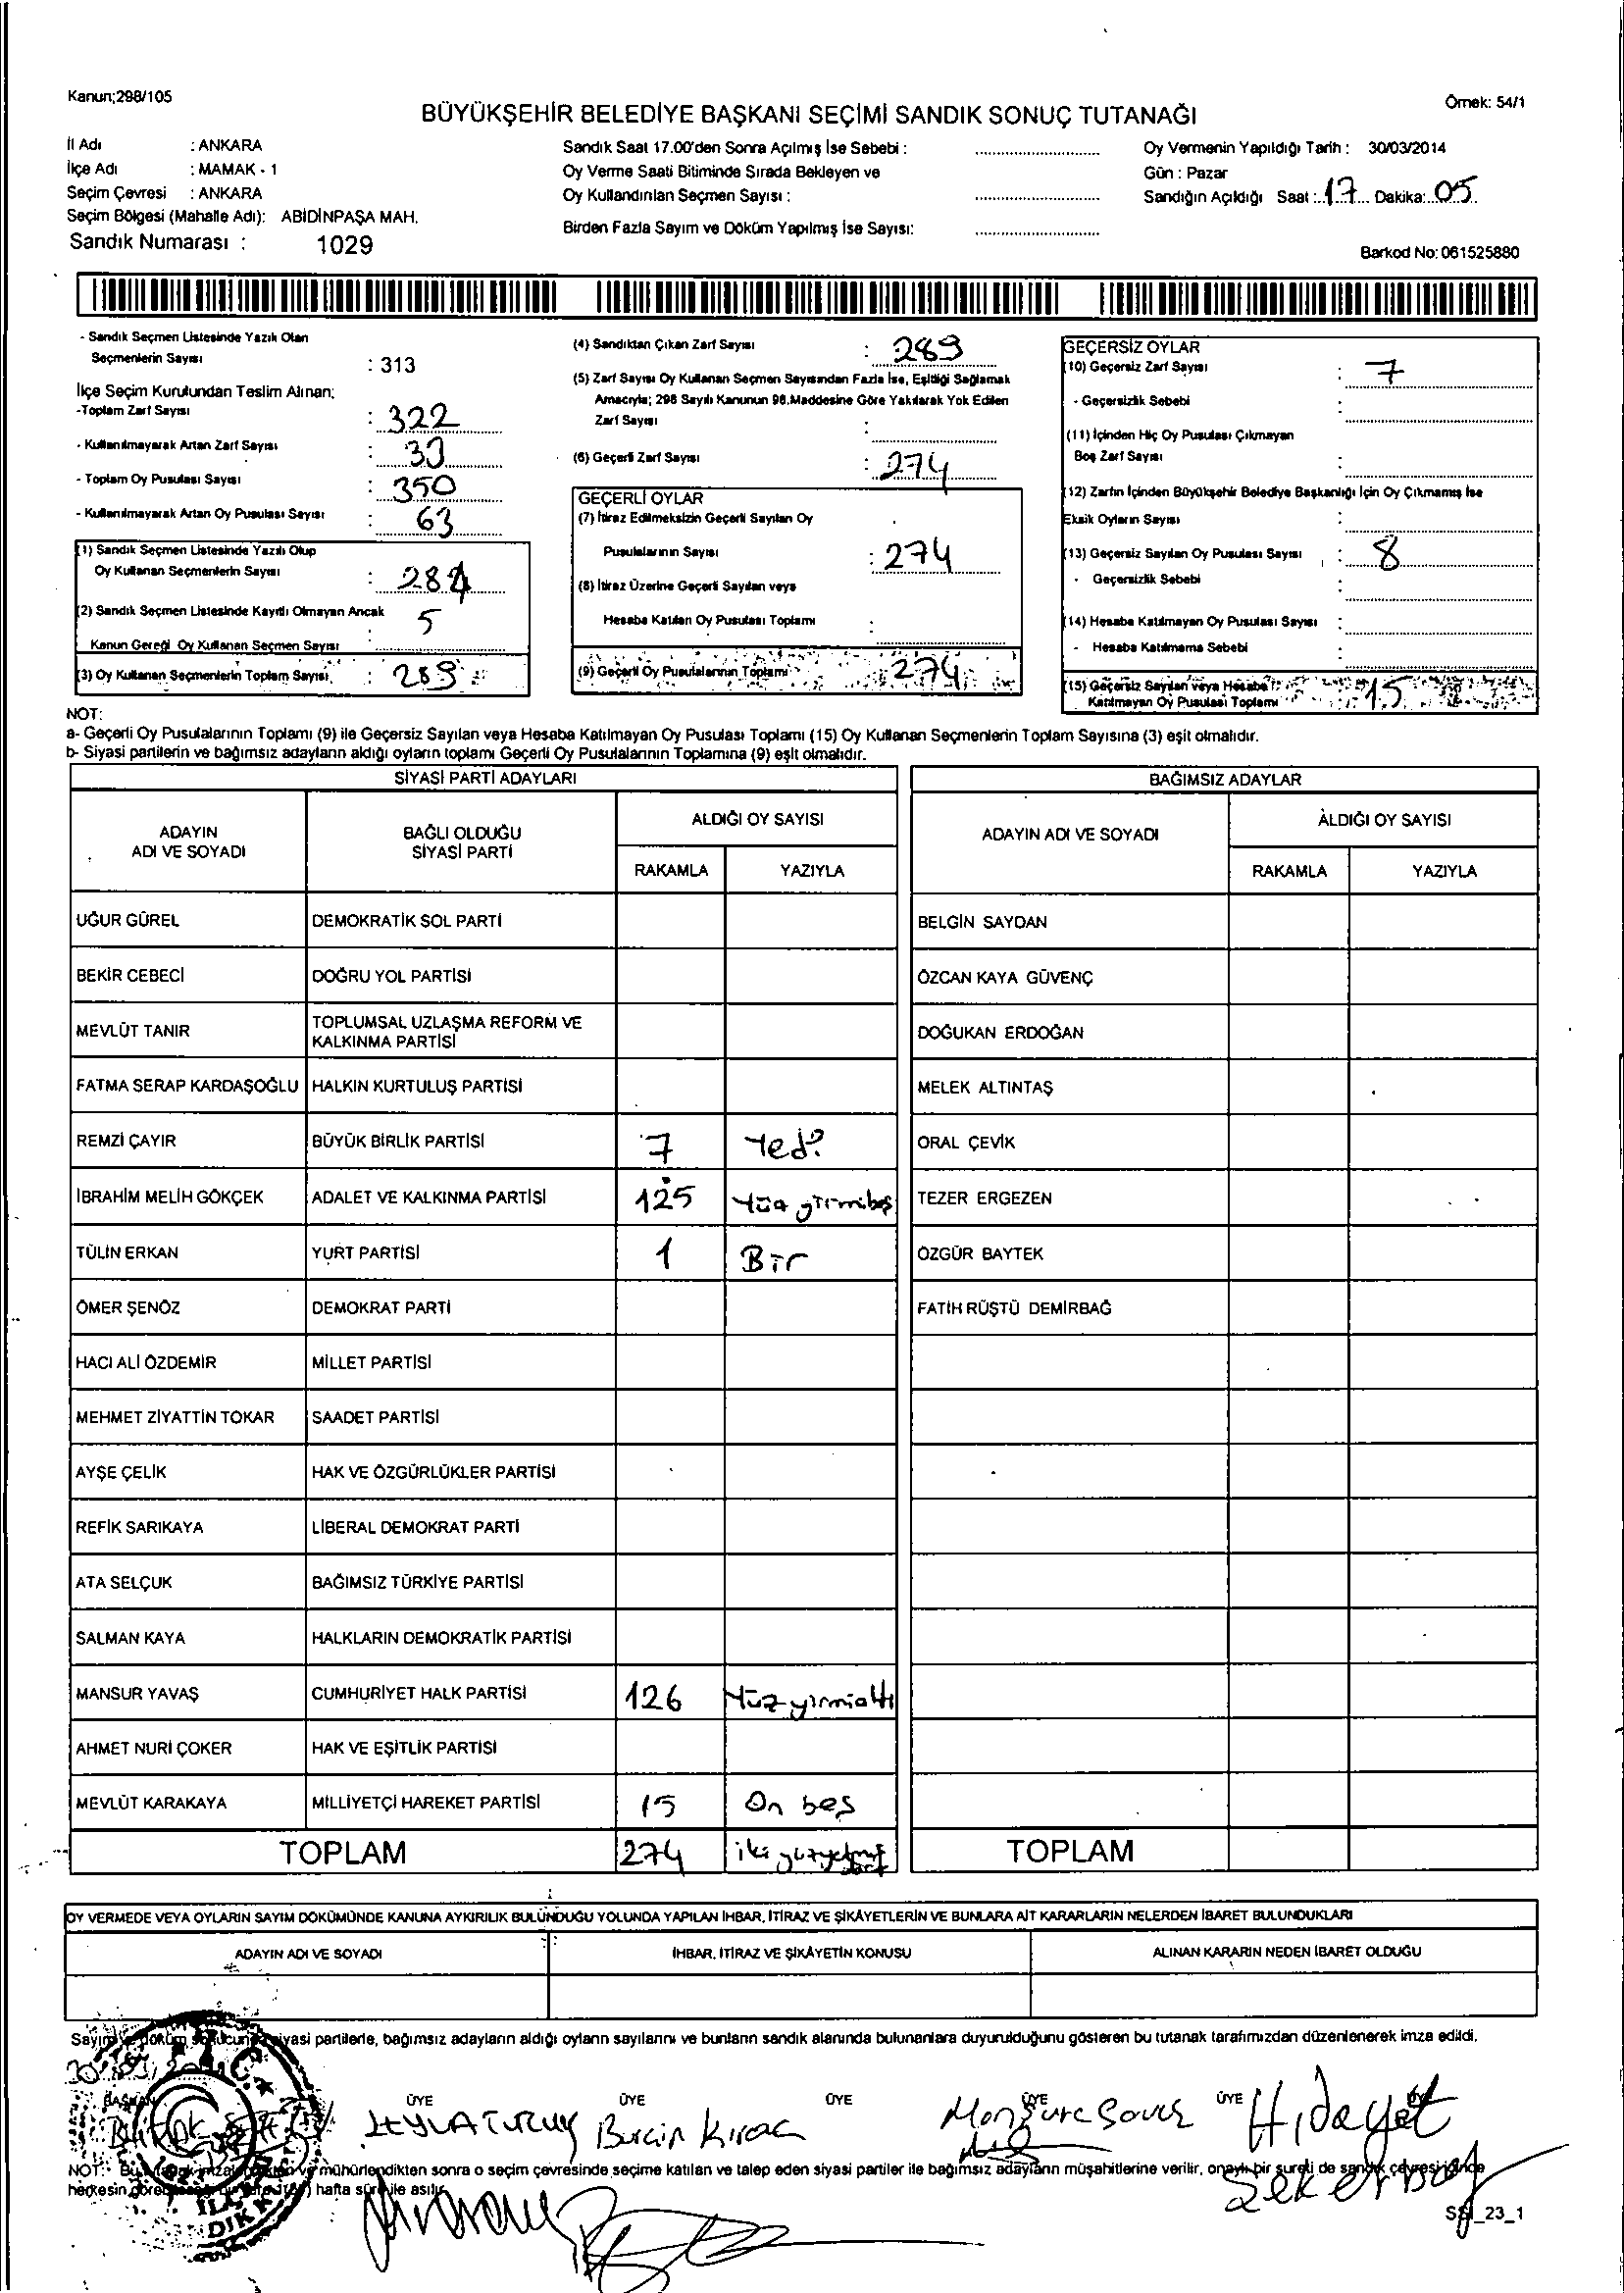 Kanun;298/105
Örnek: 54/1
BÜYÜKŞEHİR BELEDİYE BAŞKANI SEÇİMİ SANDIK SONUÇ TUTANAĞI
İl Adı : ANKARA
İlçe Adı : MAMAK - 1
Seçim Çevresi : ANKARA
Seçim Bölgesi (Mahalle Adı): ABİDİNPAŞA MAH.
Sandık Numarası : 1029
Sandık Saat 17.00'den Sonra Açılmış İse Sebebi :
Oy Verme Saati Bitiminde Sırada Bekleyen ve
Oy Kullandırılan Seçmen Sayısı :
Birden Fazla Sayım ve Döküm Yapılmış İse Sayısı:
Oy Vermenin Yapıldığı Tarih : 30/03/2014
Gün : Pazar
Sandığın Açıldığı Saat : 17 Dakika: 05
Barkod No: 061525880
- Sandık Seçmen Listesinde Yazılı Olan
Seçmenlerin Sayısı : 313
İlçe Seçim Kurulundan Teslim Alınan;
-Toplam Zarf Sayısı : 322
- Kullanılmayarak Artan Zarf Sayısı : 33
- Toplam Oy Pusulası Sayısı : 350
- Kullanılmayarak Artan Oy Pusulası Sayısı : 63
(1) Sandık Seçmen Listesinde Yazılı Olup
Oy Kullanan Seçmenlerin Sayısı : 284
(2) Sandık Seçmen Listesinde Kayıtlı Olmayan Ancak
Kanun Gereği Oy Kullanan Seçmen Sayısı : 5
(3) Oy Kullanan Seçmenlerin Toplam Sayısı : 289
(4) Sandıktan Çıkan Zarf Sayısı : 289
(5) Zarf Sayısı Oy Kullanan Seçmen Sayısından Fazla İse, Eşitliği Sağlamak
Amacıyla; 298 Sayılı Kanunun 98.Maddesine Göre Yakılarak Yok Edilen
Zarf Sayısı :
(6) Geçerli Zarf Sayısı : 274
GEÇERLİ OYLAR
(7) İtiraz Edilmeksizin Geçerli Sayılan Oy
Pusulalarının Sayısı : 274
(8) İtiraz Üzerine Geçerli Sayılan veya
Hesaba Katılan Oy Pusulası Toplamı :
(9) Geçerli Oy Pusulalarının Toplamı : 274
GEÇERSİZ OYLAR
(10) Geçersiz Zarf Sayısı : 7
- Geçersizlik Sebebi :
(11) İçinden Hiç Oy Pusulası Çıkmayan
Boş Zarf Sayısı :
(12) Zarfın İçinden Büyükşehir Belediye Başkanlığı İçin Oy Çıkmamış İse
Eksik Oyların Sayısı :
(13) Geçersiz Sayılan Oy Pusulası Sayısı : 8
- Geçersizlik Sebebi :
(14) Hesaba Katılmayan Oy Pusulası Sayısı :
- Hesaba Katılmama Sebebi :
(15) Geçersiz Sayılan veya Hesaba
Katılmayan Oy Pusulası Toplamı : 15
NOT:
a- Geçerli Oy Pusulalarının Toplamı (9) ile Geçersiz Sayılan veya Hesaba Katılmayan Oy Pusulası Toplamı (15) Oy Kullanan Seçmenlerin Toplam Sayısına (3) eşit olmalıdır.
b- Siyasi partilerin ve bağımsız adayların aldığı oyların toplamı Geçerli Oy Pusulalarının Toplamına (9) eşit olmalıdır.
SİYASİ PARTİ ADAYLARI
ADAYIN ADI VE SOYADI BAĞLI OLDUĞU SİYASİ PARTİ ALDIĞI OY SAYISI
RAKAMLA YAZIYLA
UĞUR GÜREL DEMOKRATİK SOL PARTİ
BEKİR CEBECİ DOĞRU YOL PARTİSİ
MEVLÜT TANIR TOPLUMSAL UZLAŞMA REFORM VE KALKINMA PARTİSİ
FATMA SERAP KARDAŞOĞLU HALKIN KURTULUŞ PARTİSİ
REMZİ ÇAYIR BÜYÜK BİRLİK PARTİSİ 7 Yedi
İBRAHİM MELİH GÖKÇEK ADALET VE KALKINMA PARTİSİ 125 Yüz yirmibeş
TÜLİN ERKAN YURT PARTİSİ 1 Bir
ÖMER ŞENÖZ DEMOKRAT PARTİ
HACI ALİ ÖZDEMİR MİLLET PARTİSİ
MEHMET ZİYATTİN TOKAR SAADET PARTİSİ
AYŞE ÇELİK HAK VE ÖZGÜRLÜKLER PARTİSİ
REFİK SARIKAYA LİBERAL DEMOKRAT PARTİ
ATA SELÇUK BAĞIMSIZ TÜRKİYE PARTİSİ
SALMAN KAYA HALKLARIN DEMOKRATİK PARTİSİ
MANSUR YAVAŞ CUMHURİYET HALK PARTİSİ 126 Yüz yirmialtı
AHMET NURİ ÇOKER HAK VE EŞİTLİK PARTİSİ
MEVLÜT KARAKAYA MİLLİYETÇİ HAREKET PARTİSİ 15 On beş
TOPLAM 274 iki yüzyetmiş dört
BAĞIMSIZ ADAYLAR
ADAYIN ADI VE SOYADI ALDIĞI OY SAYISI
RAKAMLA YAZIYLA
BELGİN SAYDAN
ÖZCAN KAYA GÜVENÇ
DOĞUKAN ERDOĞAN
MELEK ALTINTAŞ
ORAL ÇEVİK
TEZER ERGEZEN
ÖZGÜR BAYTEK
FATİH RÜŞTÜ DEMİRBAĞ
TOPLAM
OY VERMEDE VEYA OYLARIN SAYIM DÖKÜMÜNDE KANUNA AYKIRILIK BULUNDUĞU YOLUNDA YAPILAN İHBAR, İTİRAZ VE ŞİKÂYETLERİN VE BUNLARA AİT KARARLARIN NELERDEN İBARET BULUNDUKLARI
ADAYIN ADI VE SOYADI İHBAR, İTİRAZ VE ŞİKÂYETİN KONUSU ALINAN KARARIN NEDEN İBARET OLDUĞU
Sayım ve döküm sonucunda siyasi partilerle, bağımsız adayların aldığı oyların sayılarını ve bunların sandık alanında bulunanlara duyurulduğunu gösteren bu tutanak tarafımızdan düzenlenerek imza edildi.
BAŞKAN ÜYE ÜYE ÜYE ÜYE ÜYE
Burcin Kıraç
Hidayet
Şekerbay
NOT: Bu tutanak imzalandıktan ve mühürlendikten sonra o seçim çevresinde seçime katılan ve talep eden siyasi partiler ile bağımsız adayların müşahitlerine verilir, onaylı bir sureti de sandık çevresi içinde
hafta süre ile asılır.
23_1